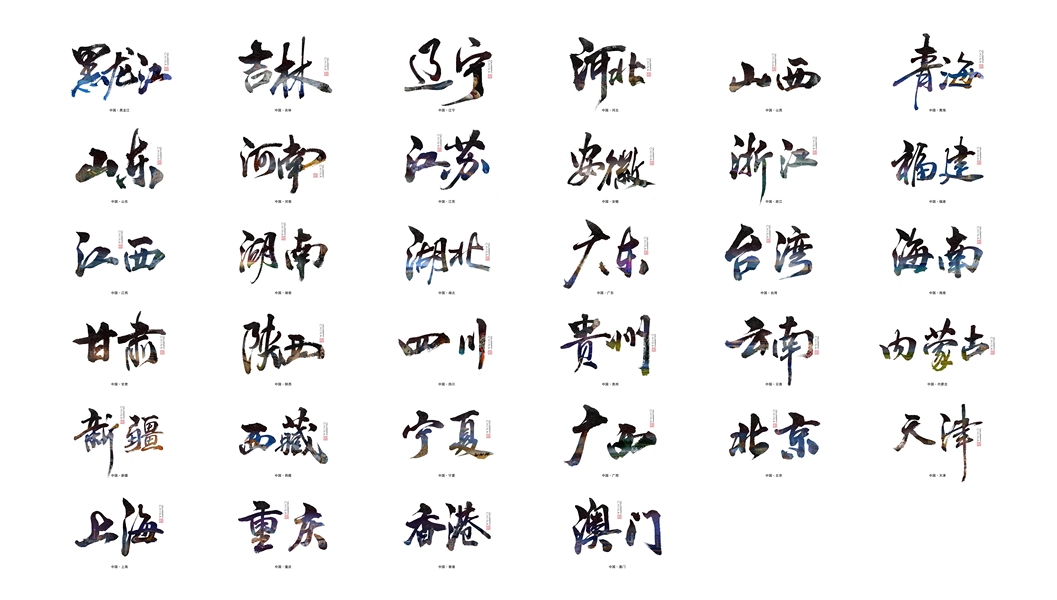 黑龙江 吉林 辽宁 河北 山西 青海
中国·黑龙江 中国·吉林 中国·辽宁 中国·河北 中国·山西 中国·青海
山东 河南 江苏 安徽 浙江 福建
中国·山东 中国·河南 中国·江苏 中国·安徽 中国·浙江 中国·福建
江西 湖南 湖北 广东 台湾 海南
中国·江西 中国·湖南 中国·湖北 中国·广东 中国·台湾 中国·海南
甘肃 陕西 四川 贵州 云南 内蒙古
中国·甘肃 中国·陕西 中国·四川 中国·贵州 中国·云南 中国·内蒙古
新疆 西藏 宁夏 广西 北京 天津
中国·新疆 中国·西藏 中国·宁夏 中国·广西 中国·北京 中国·天津
上海 重庆 香港 澳门
中国·上海 中国·重庆 中国·香港 中国·澳门